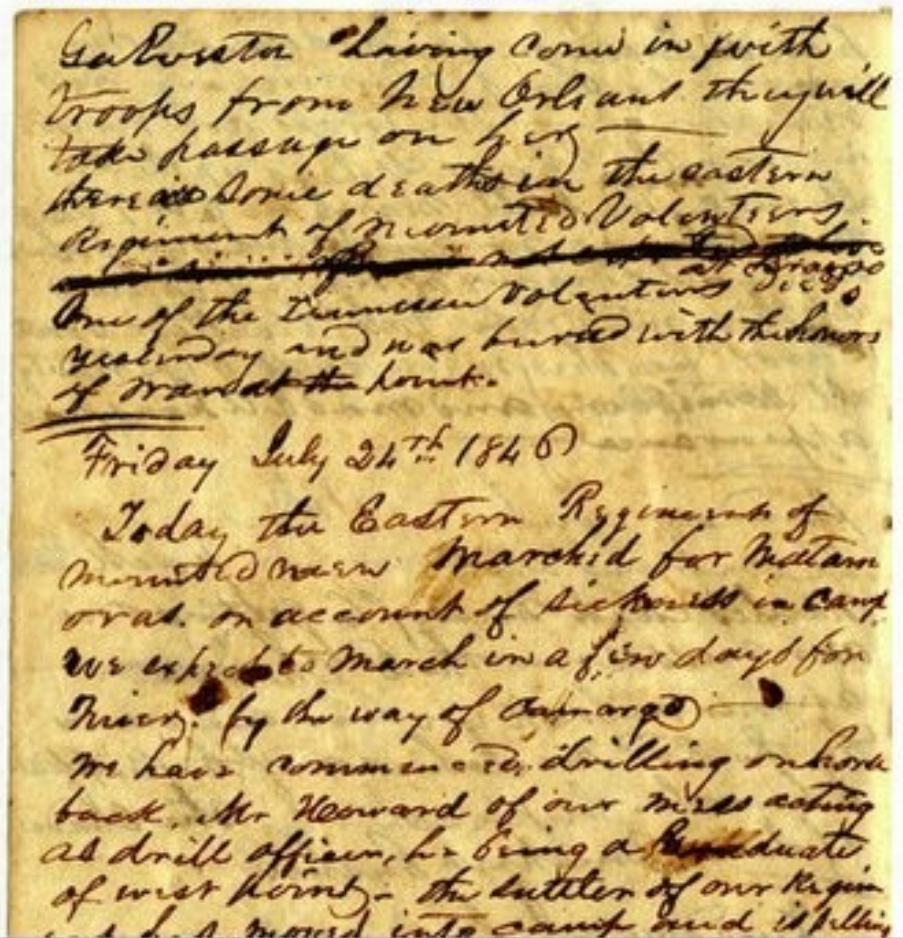 Galveston having come in with
troops from New Orleans they will
take passage on her
there is some deaths in the eastern
Regiment of Mounted Volunteers.
at Brazos
One of the Tennessee Volunteers died
yesterday and was buried with the honors
of war at the point.
Friday July 24th 1846
Today the Eastern Regiment of
mounted men Marchid for Matam
oras. on account of sickness in camp
we expect to March in a few days for
by the way of Camargo
we have commenced drilling on horse
back. Mr Howard of our mess acting
as drill officer, he being a Graduate
of west point - the suttler of our Regim
has moved into camp and is selling